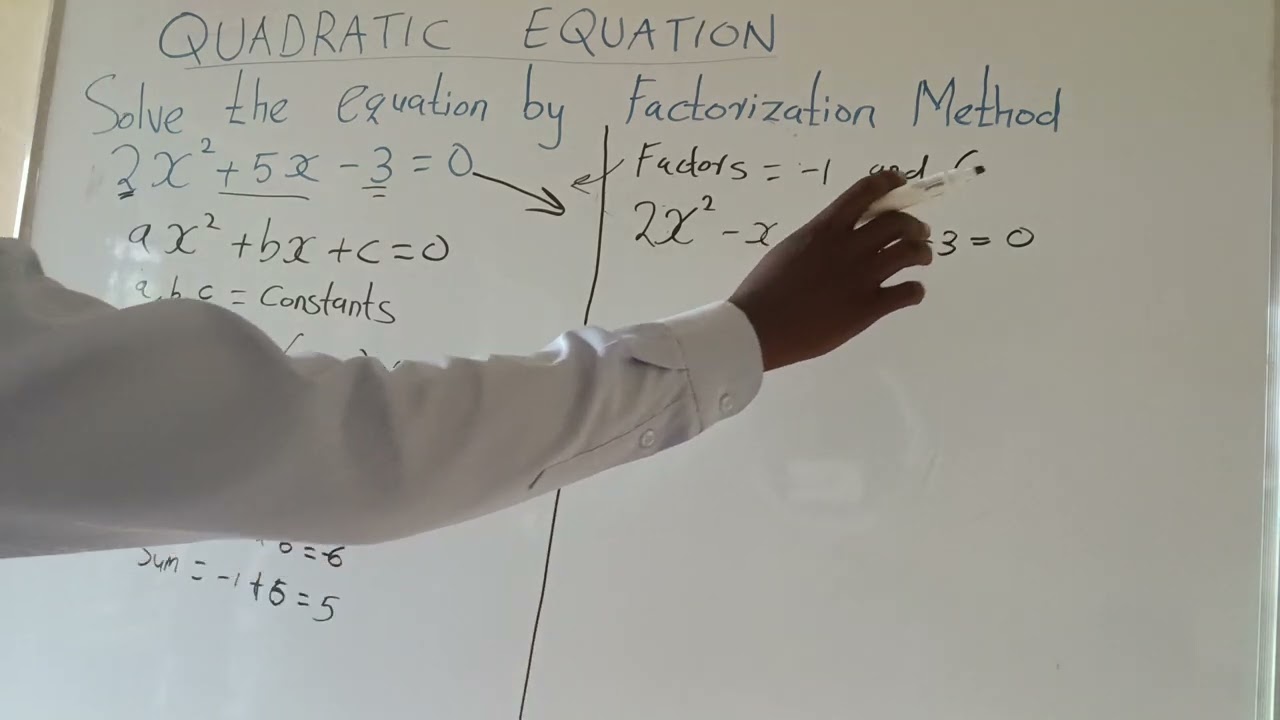 QUADRATIC EQUATION
Solve the equation by Factorization Method
2x² + 5x - 3 = 0
ax² + bx + c = 0
a, b, c = Constants
6 = -6
Sum = -1 + 6 = 5
Factors = -1 and
2x² - x - 3 = 0